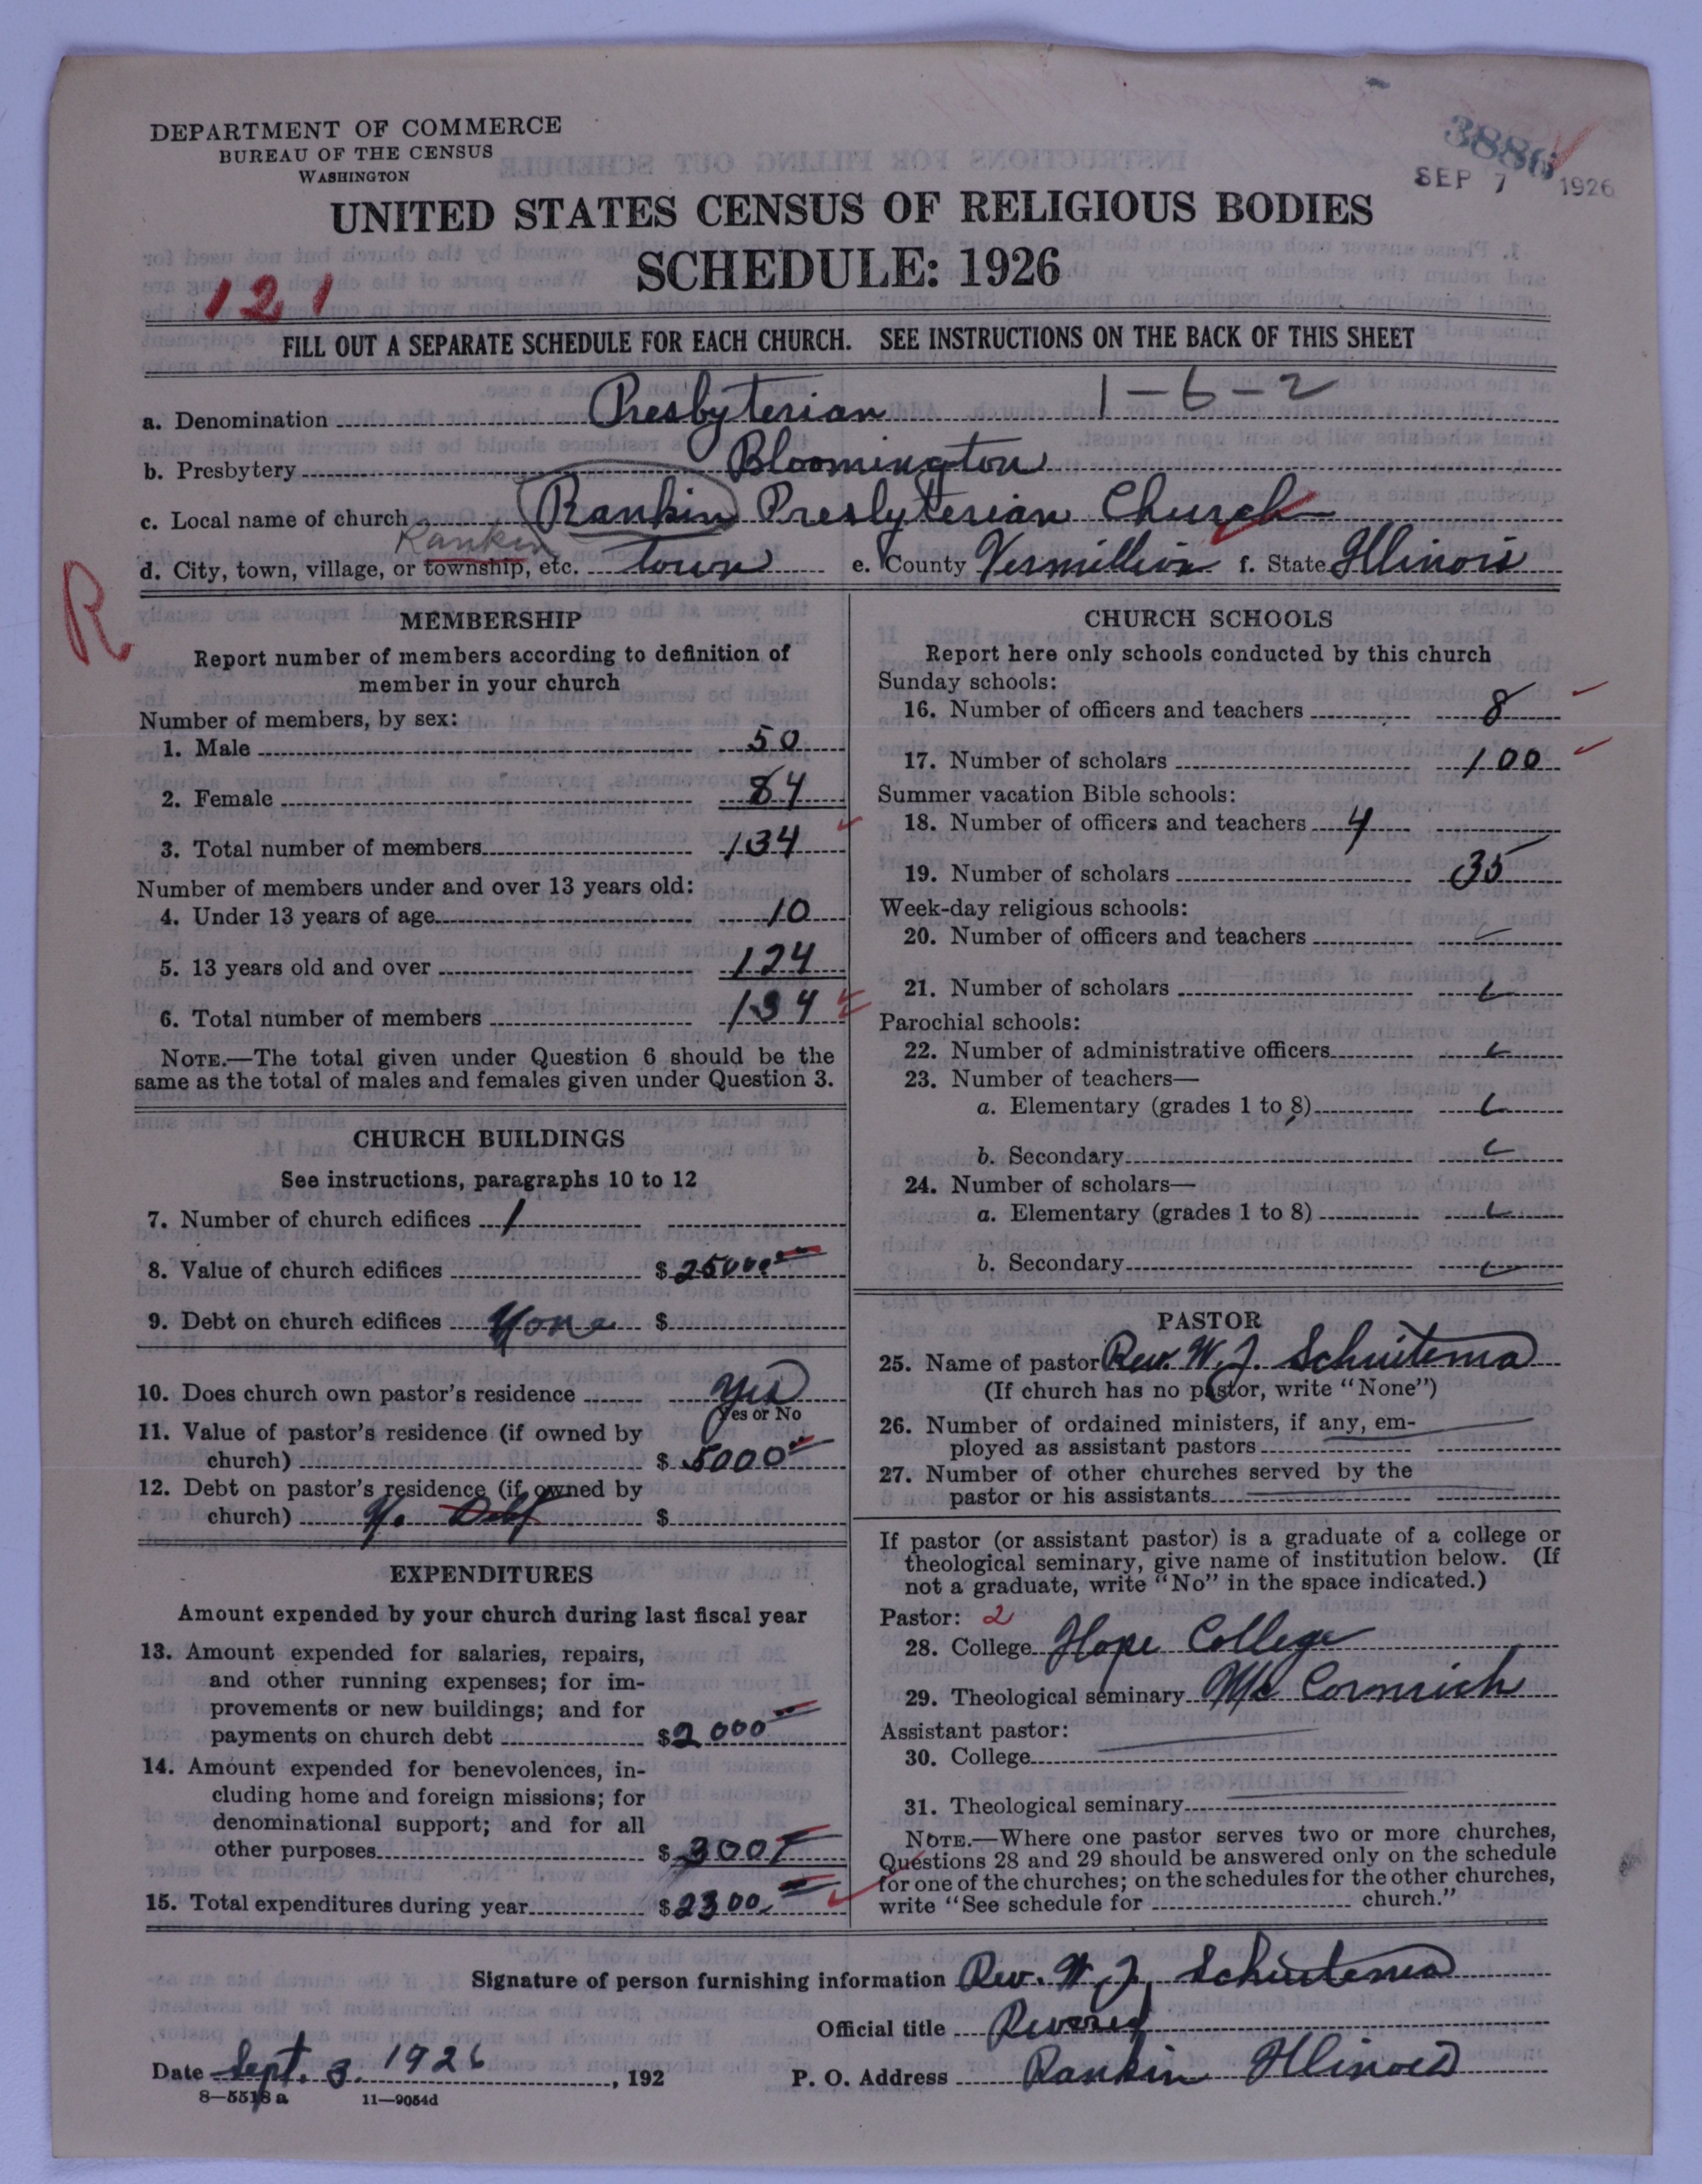 DEPARTMENT OF COMMERCE
BUREAU OF THE CENSUS
WASHINGTON
3886
SEP 7 1926
UNITED STATES CENSUS OF RELIGIOUS BODIES
SCHEDULE: 1926
121
FILL OUT A SEPARATE SCHEDULE FOR EACH CHURCH. SEE INSTRUCTIONS ON THE BACK OF THIS SHEET
a. Denomination Presbyterian 1-6-2
b. Presbytery Bloomington
c. Local name of church Rankin Presbyterian Church
Rankin
d. City, town, village, or township, etc. town e. County Vermillion f. State Illinois
R
MEMBERSHIP
Report number of members according to definition of
member in your church
Number of members, by sex:
1. Male 50
2. Female 84
3. Total number of members 134
Number of members under and over 13 years old:
4. Under 13 years of age 10
5. 13 years old and over 124
6. Total number of members 134
NOTE.—The total given under Question 6 should be the
same as the total of males and females given under Question 3.
CHURCH BUILDINGS
See instructions, paragraphs 10 to 12
7. Number of church edifices 1
8. Value of church edifices $ 25000
9. Debt on church edifices None $
10. Does church own pastor's residence yes
Yes or No
11. Value of pastor's residence (if owned by
church) $ 5000
12. Debt on pastor's residence (if owned by
church) No Debt $
EXPENDITURES
Amount expended by your church during last fiscal year
13. Amount expended for salaries, repairs,
and other running expenses; for im-
provements or new buildings; and for
payments on church debt $ 2000
14. Amount expended for benevolences, in-
cluding home and foreign missions; for
denominational support; and for all
other purposes $ 300
15. Total expenditures during year $ 2300
CHURCH SCHOOLS
Report here only schools conducted by this church
Sunday schools:
16. Number of officers and teachers 8
17. Number of scholars 100
Summer vacation Bible schools:
18. Number of officers and teachers 4
19. Number of scholars 35
Week-day religious schools:
20. Number of officers and teachers
21. Number of scholars
Parochial schools:
22. Number of administrative officers
23. Number of teachers—
a. Elementary (grades 1 to 8)
b. Secondary
24. Number of scholars—
a. Elementary (grades 1 to 8)
b. Secondary
PASTOR
25. Name of pastor Rev. W. J. Schuitema
(If church has no pastor, write "None")
26. Number of ordained ministers, if any, em-
ployed as assistant pastors
27. Number of other churches served by the
pastor or his assistants
If pastor (or assistant pastor) is a graduate of a college or
theological seminary, give name of institution below. (If
not a graduate, write "No" in the space indicated.)
Pastor: 2
28. College Hope College
29. Theological seminary Mc Cormick
Assistant pastor:
30. College
31. Theological seminary
NOTE.—Where one pastor serves two or more churches,
Questions 28 and 29 should be answered only on the schedule
for one of the churches; on the schedules for the other churches,
write "See schedule for church."
Signature of person furnishing information Rev. W. J. Schuitema
Official title
Date Sept. 3. 1926, 192 P. O. Address Rankin Illinois
8—5518 a 11—9054d